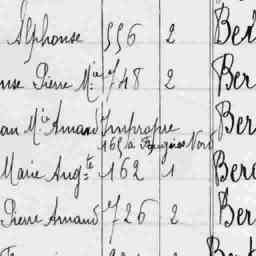 Alphonse 556 2 Ber
nse Pierre M.ie 748 2 Ber
an M.ie Armand Impropre Ber
165 à Fougères Nord
Marie Aug.te 162 1 Ber
Pierre Armand 726 2 Ber